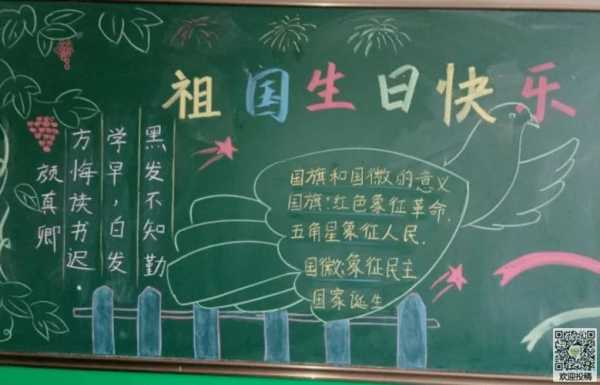 祖国生日快乐
黑发不知勤
学早，白发
方悔读书迟
颜真卿
国旗和国徽的意义
国旗：红色象征革命.
五角星象征人民.
国徽：象征民主
国家诞生
欢迎投稿